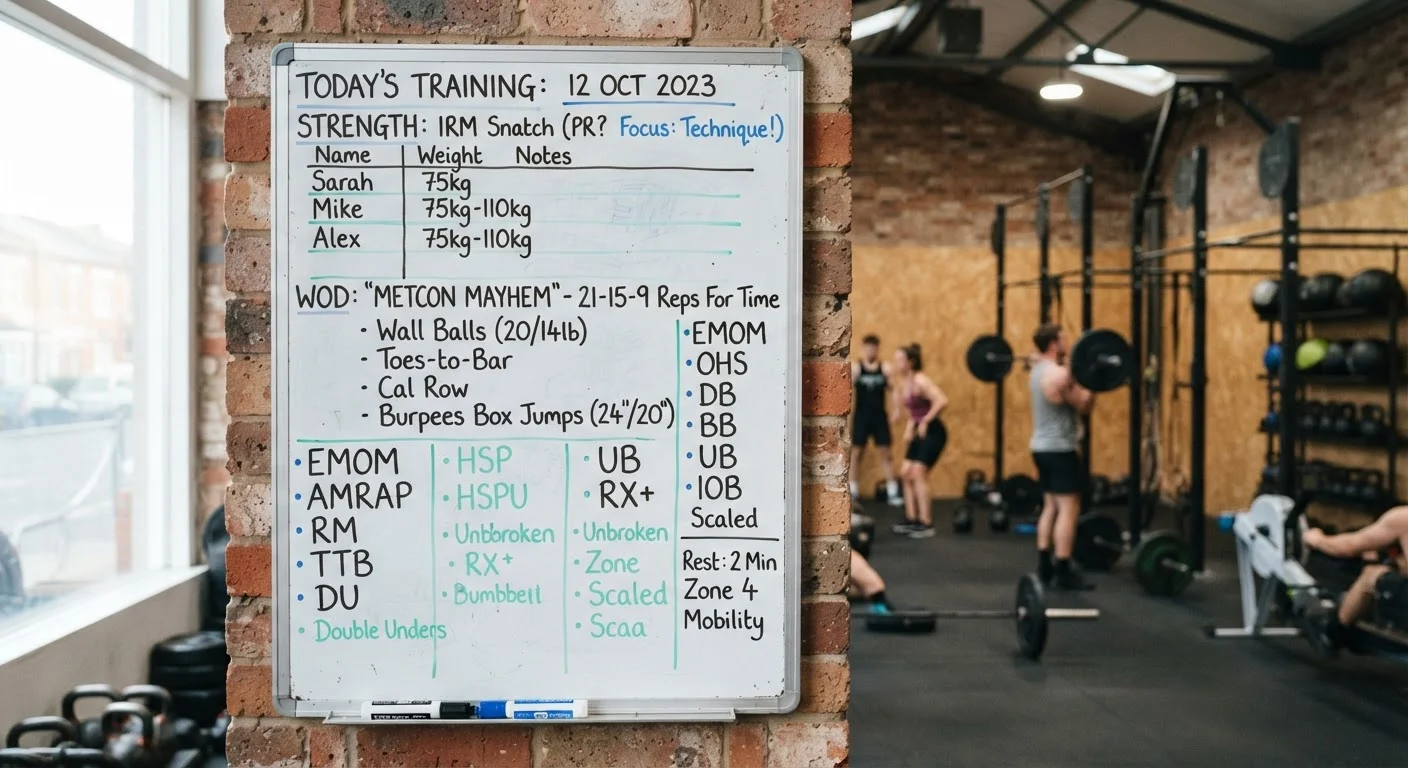 TODAY'S TRAINING: 12 OCT 2023
STRENGTH: IRM Snatch (PR? Focus: Technique!)
Name Weight Notes
Sarah 75kg
Mike 75kg-110kg
Alex 75kg-110kg
WOD: "METCON MAYHEM" - 21-15-9 Reps For Time
· Wall Balls (20/14lb)
· Toes-to-Bar
· Cal Row
· Burpees Box Jumps (24"/20")
· EMOM
· AMRAP
· RM
· TTB
· DU
· Double Unders
· HSP
· HSPU
· Untbroken
· RX+
· Bumbbell
· UB
· RX+
· Unbroken
· Zone
· Scaled
· Scaa
· EMOM
· OHS
· DB
· BB
· UB
· IOB
Scaled
Rest: 2 Min
Zone 4
Mobility